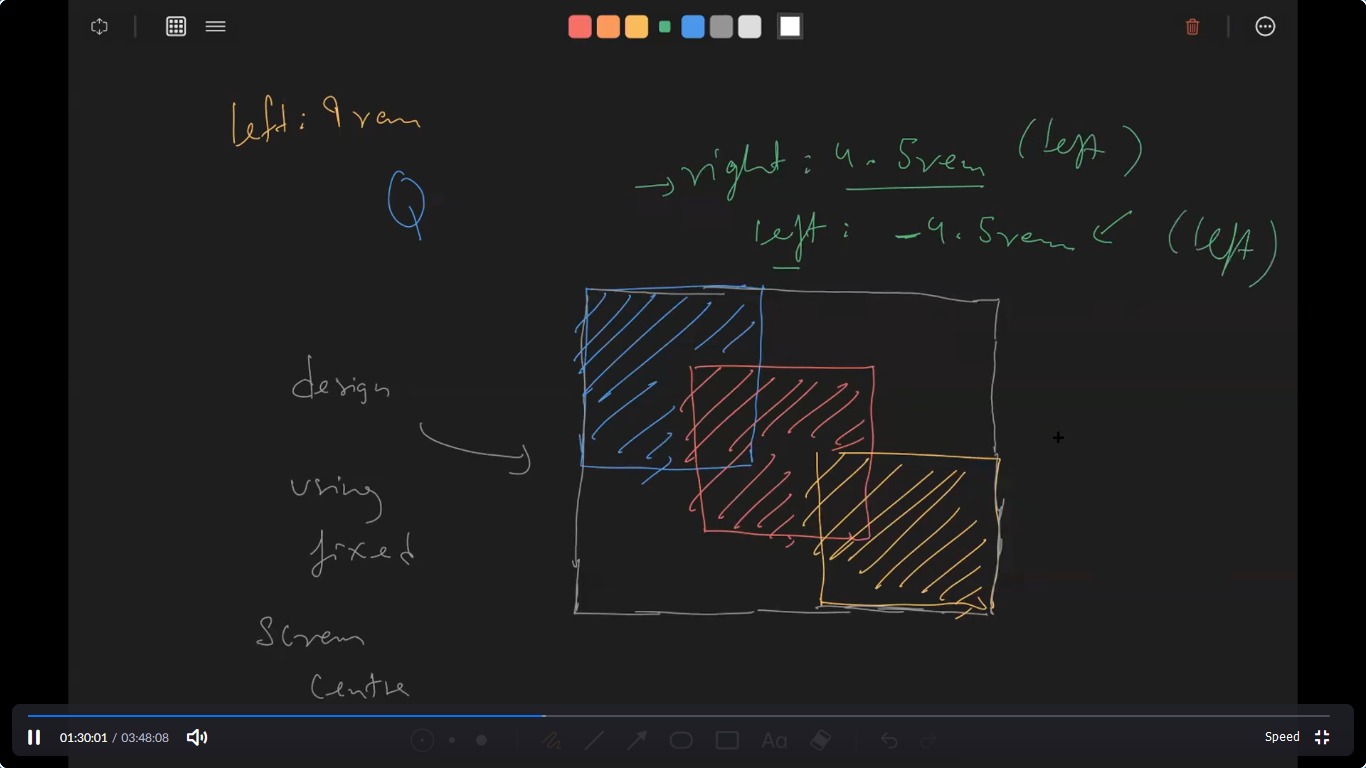 left: 9rem
→ right: 4.5rem (left)
Q
left: -4.5rem ✓ (left)
design
using
fixed
Screen
Centre
01:30:01 / 03:48:08
Speed
Aa